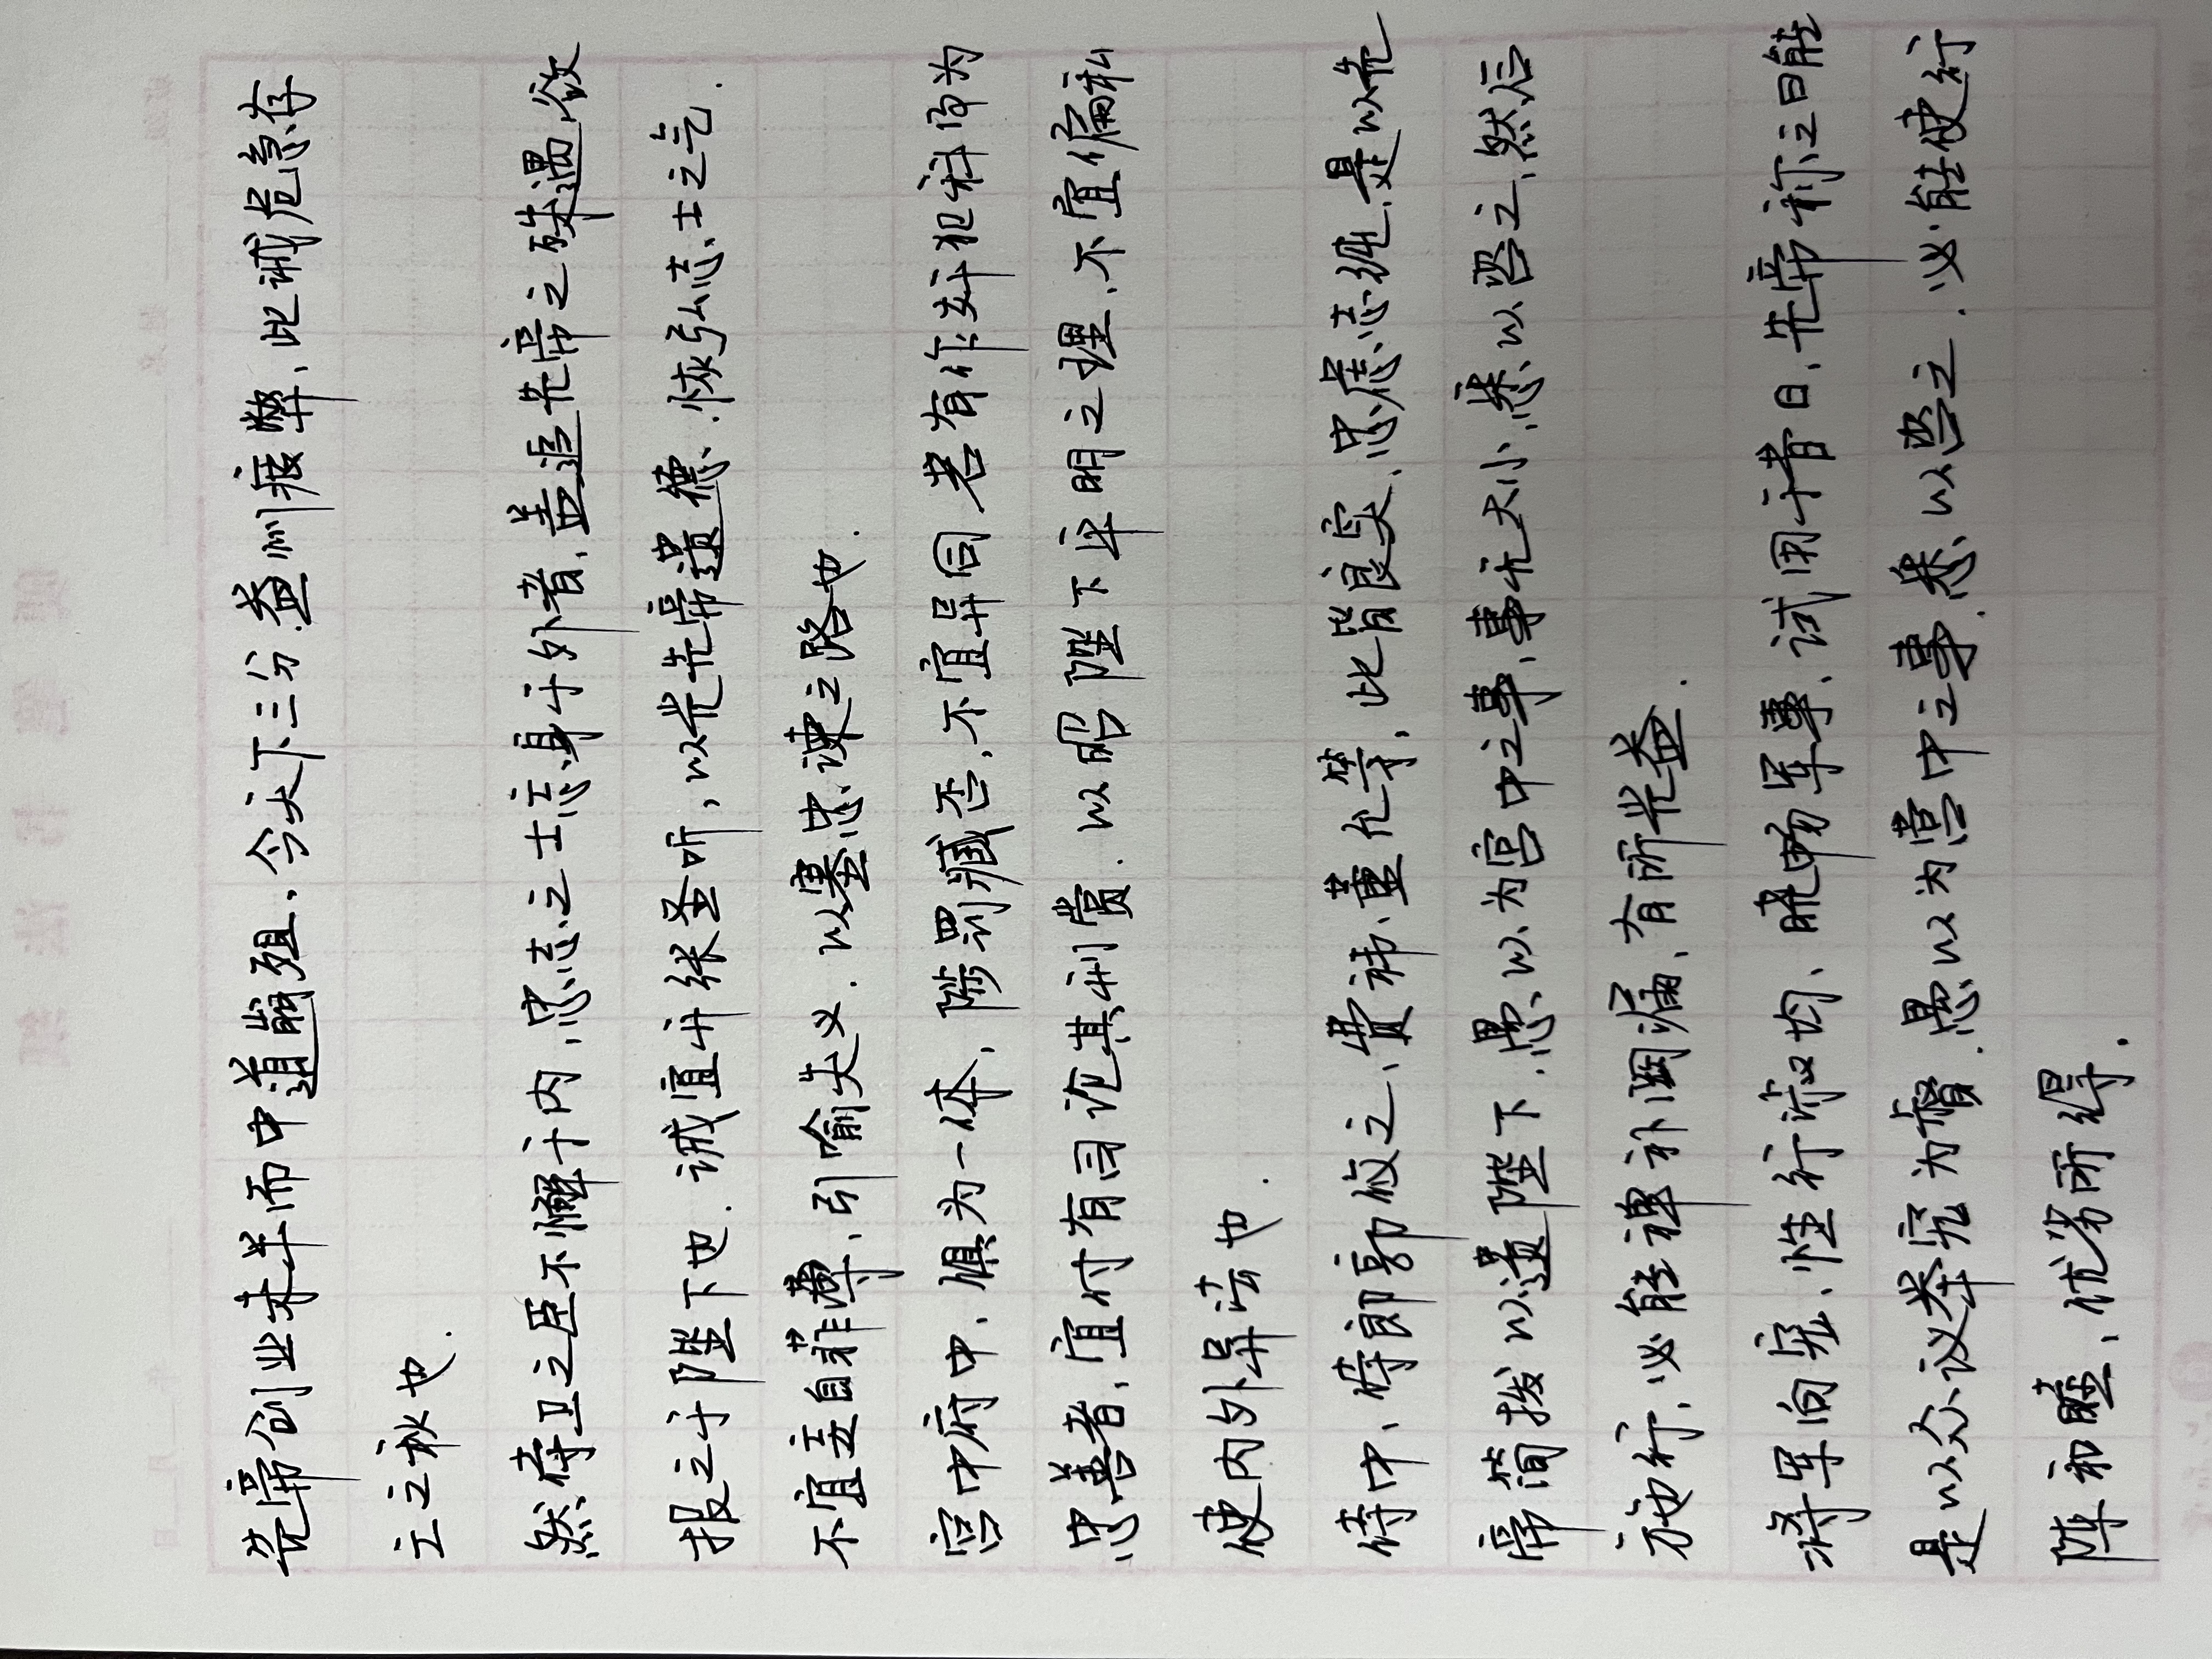 先帝创业未半而中道崩殂，今天下三分，益州疲弊，此诚危急存
亡之秋也.
然侍卫之臣不懈于内，忠志之士忘身于外者，盖追先帝之殊遇，欲
报之于陛下也. 诚宜开张圣听，以光先帝遗德，恢弘志士之气.
不宜妄自菲薄，引喻失义. 以塞忠谏之路也.
宫中府中，俱为一体，陟罚臧否，不宜异同 若有作奸犯科及为
忠善者，宜付有司论其刑赏. 以昭陛下平明之理，不宜偏私
使内外异法也.
侍中、侍郎郭攸之、费祎、董允等，此皆良实，忠虑志纯，是以先
帝简拔以遗陛下，愚以为宫中之事，事无大小，悉以咨之，然后
施行，必能裨补阙漏，有所光益.
将军向宠，性行淑均，晓畅军事，试用于昔日，先帝称之曰能
是以众议举宠为督. 愚以为营中之事，悉以咨之. 必能使行
阵和睦，优劣所得.